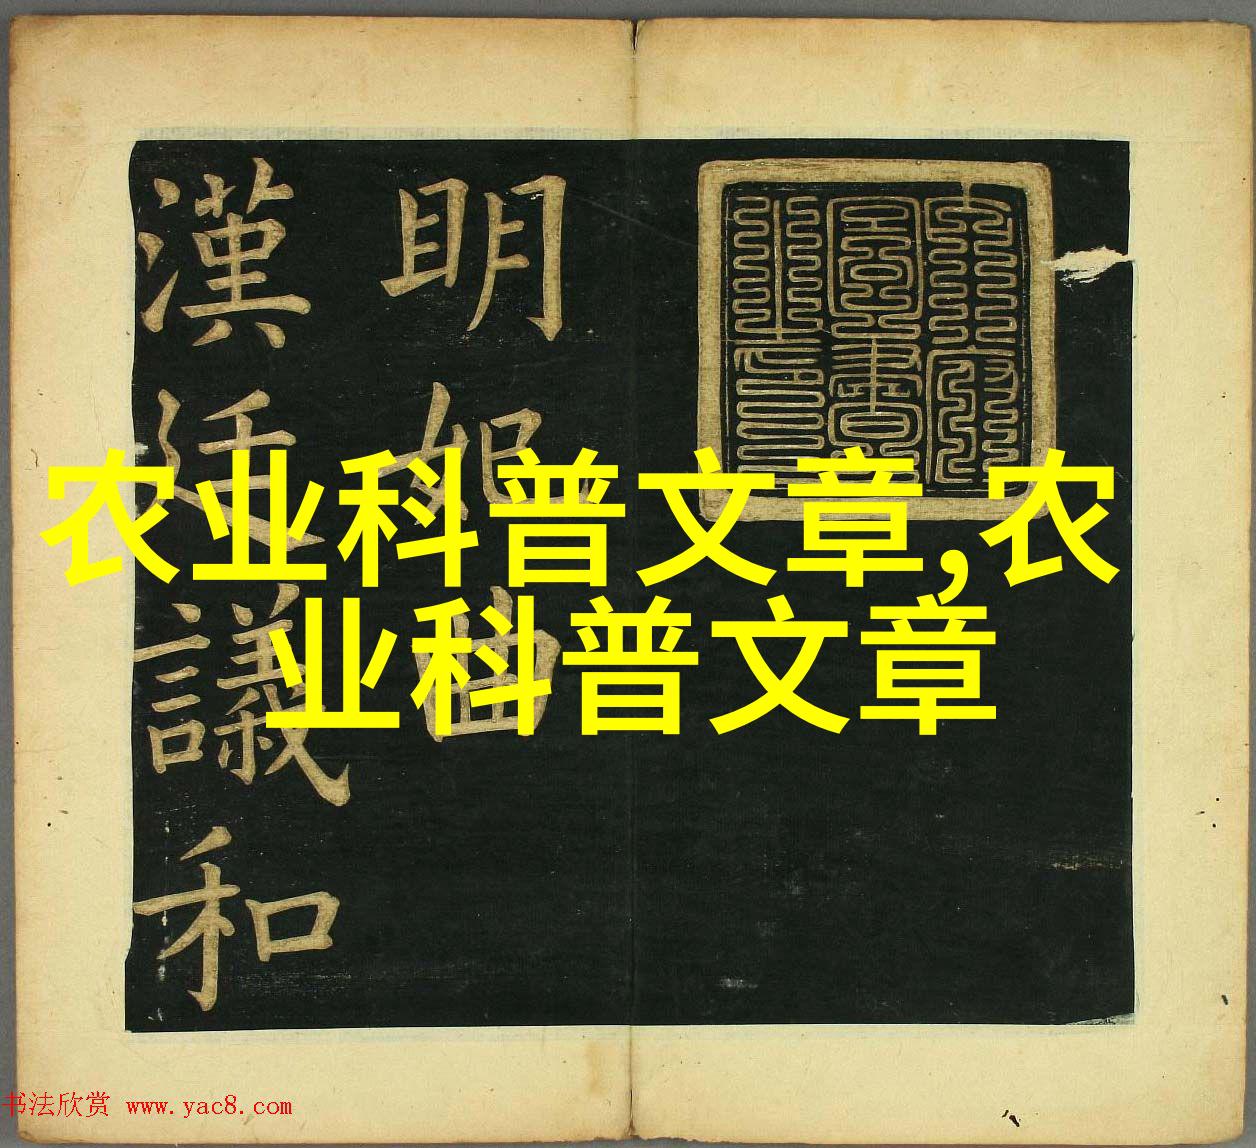 明妃曲
漢廷議和
农业科普文章,农
业科普文章
书法欣赏 www.yac8.com